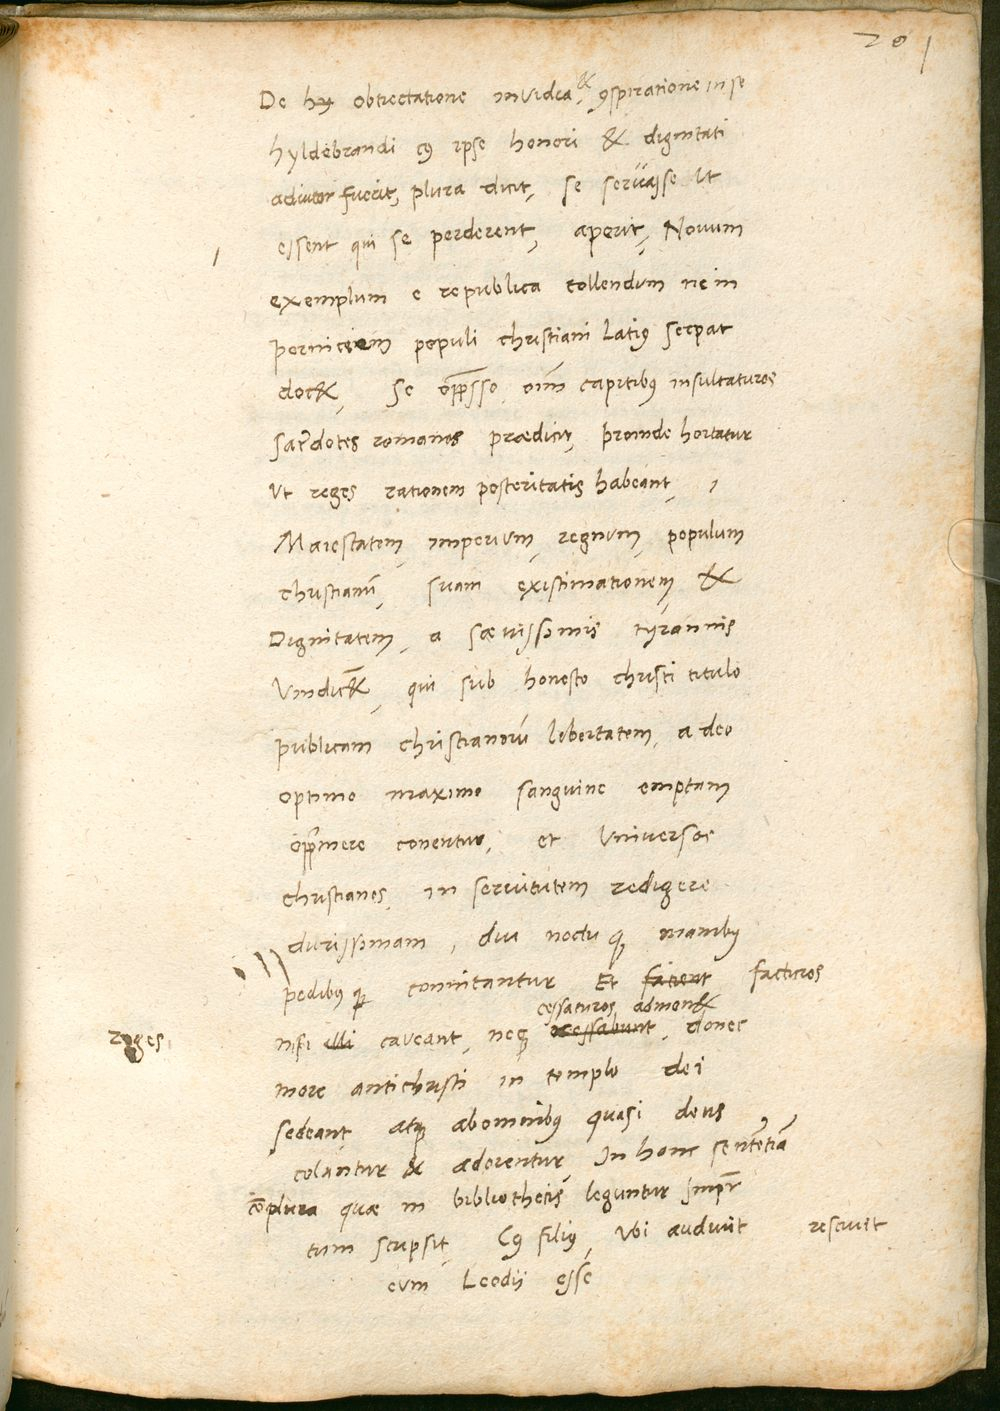 201
De hꝫ obtrectatione invidia, & ꝯspiratione in se
hyldebrandi cꝰ ipse honori & dignitati
adiutor fuerit, plura dicit, se servasse ut
essent qui se perderent, aperit, Novum
exemplum e republica tollendum ne in
perniciem populi christiani latiꝰ serpat
doc&, se opp̃sso oim̄ capitibꝰ insultaturos
sacr̃dotes romanos prædicit, proinde hortatur
ut reges rationem posteritatis habeant,
Maiestatem, imperium, regnum, populum
christianū, suam existimationem, &
Dignitatem, a sævissimis tyrannis
vindic&, qui sub honesto christi titulo
publicam christianorū libertatem, a deo
optimo maximo sanguine emptam
opp̃mere conentur, et universos
christianos, in servitutem redigere
durissimam, diu noctu qꝫ manibꝰ
pedibꝰ qꝫ connitantur Et fatient facturos
cessaturos admon&
reges, nisi illi caveant, neqꝫ cessabunt, donec
more antichristi in templo dei
sedeant atqꝫ ab omnibꝰ quasi deus
colantur & adorentur, In hanc sentētiā
cōplura quæ in bibliothecis leguntur Imp̃r
tum scripsit, Cꝰ filiꝰ, ubi audivit rescivit
eum Leodij esse